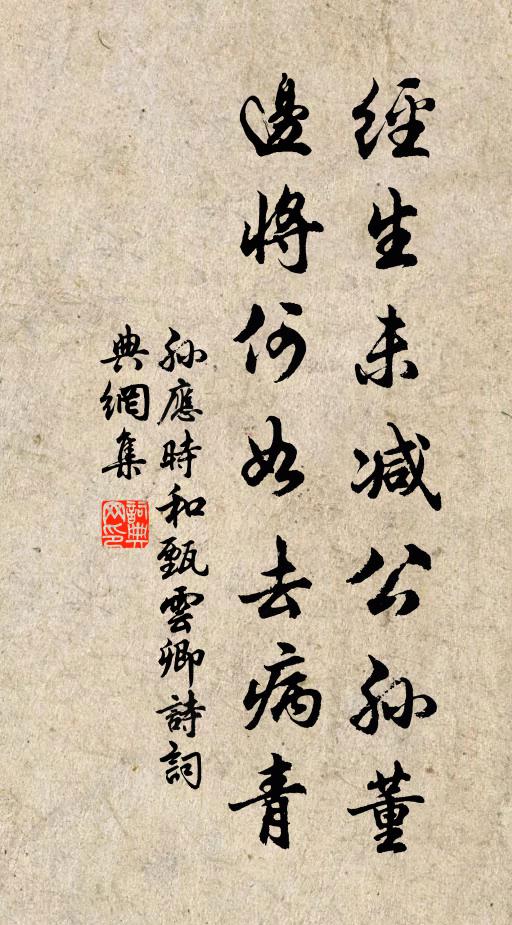 經生未減公孫董
邊將何如去病青
孫應時和甄雲卿詩詞
典網集
詞典
网印